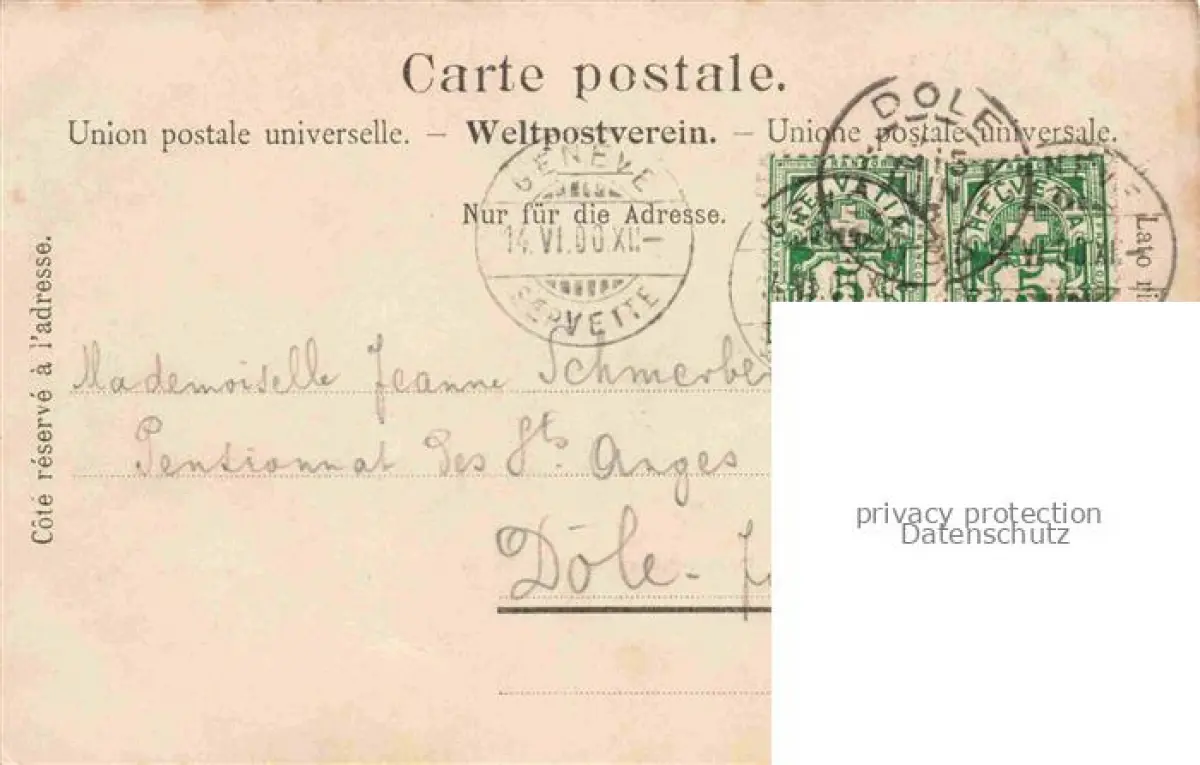 Carte postale.
Union postale universelle. — Weltpostverein. — Unione postale universale.
Nur für die Adresse.
Côté réservé à l'adresse.
Lato
GENÈVE
14.VI.00 XII—
SERVETTE
DOLE
HELVETIA
5
HELVETIA
5
Mademoiselle Jeanne Schmerbe
Pensionnat des Sts. Anges
Dôle -
privacy protection
Datenschutz